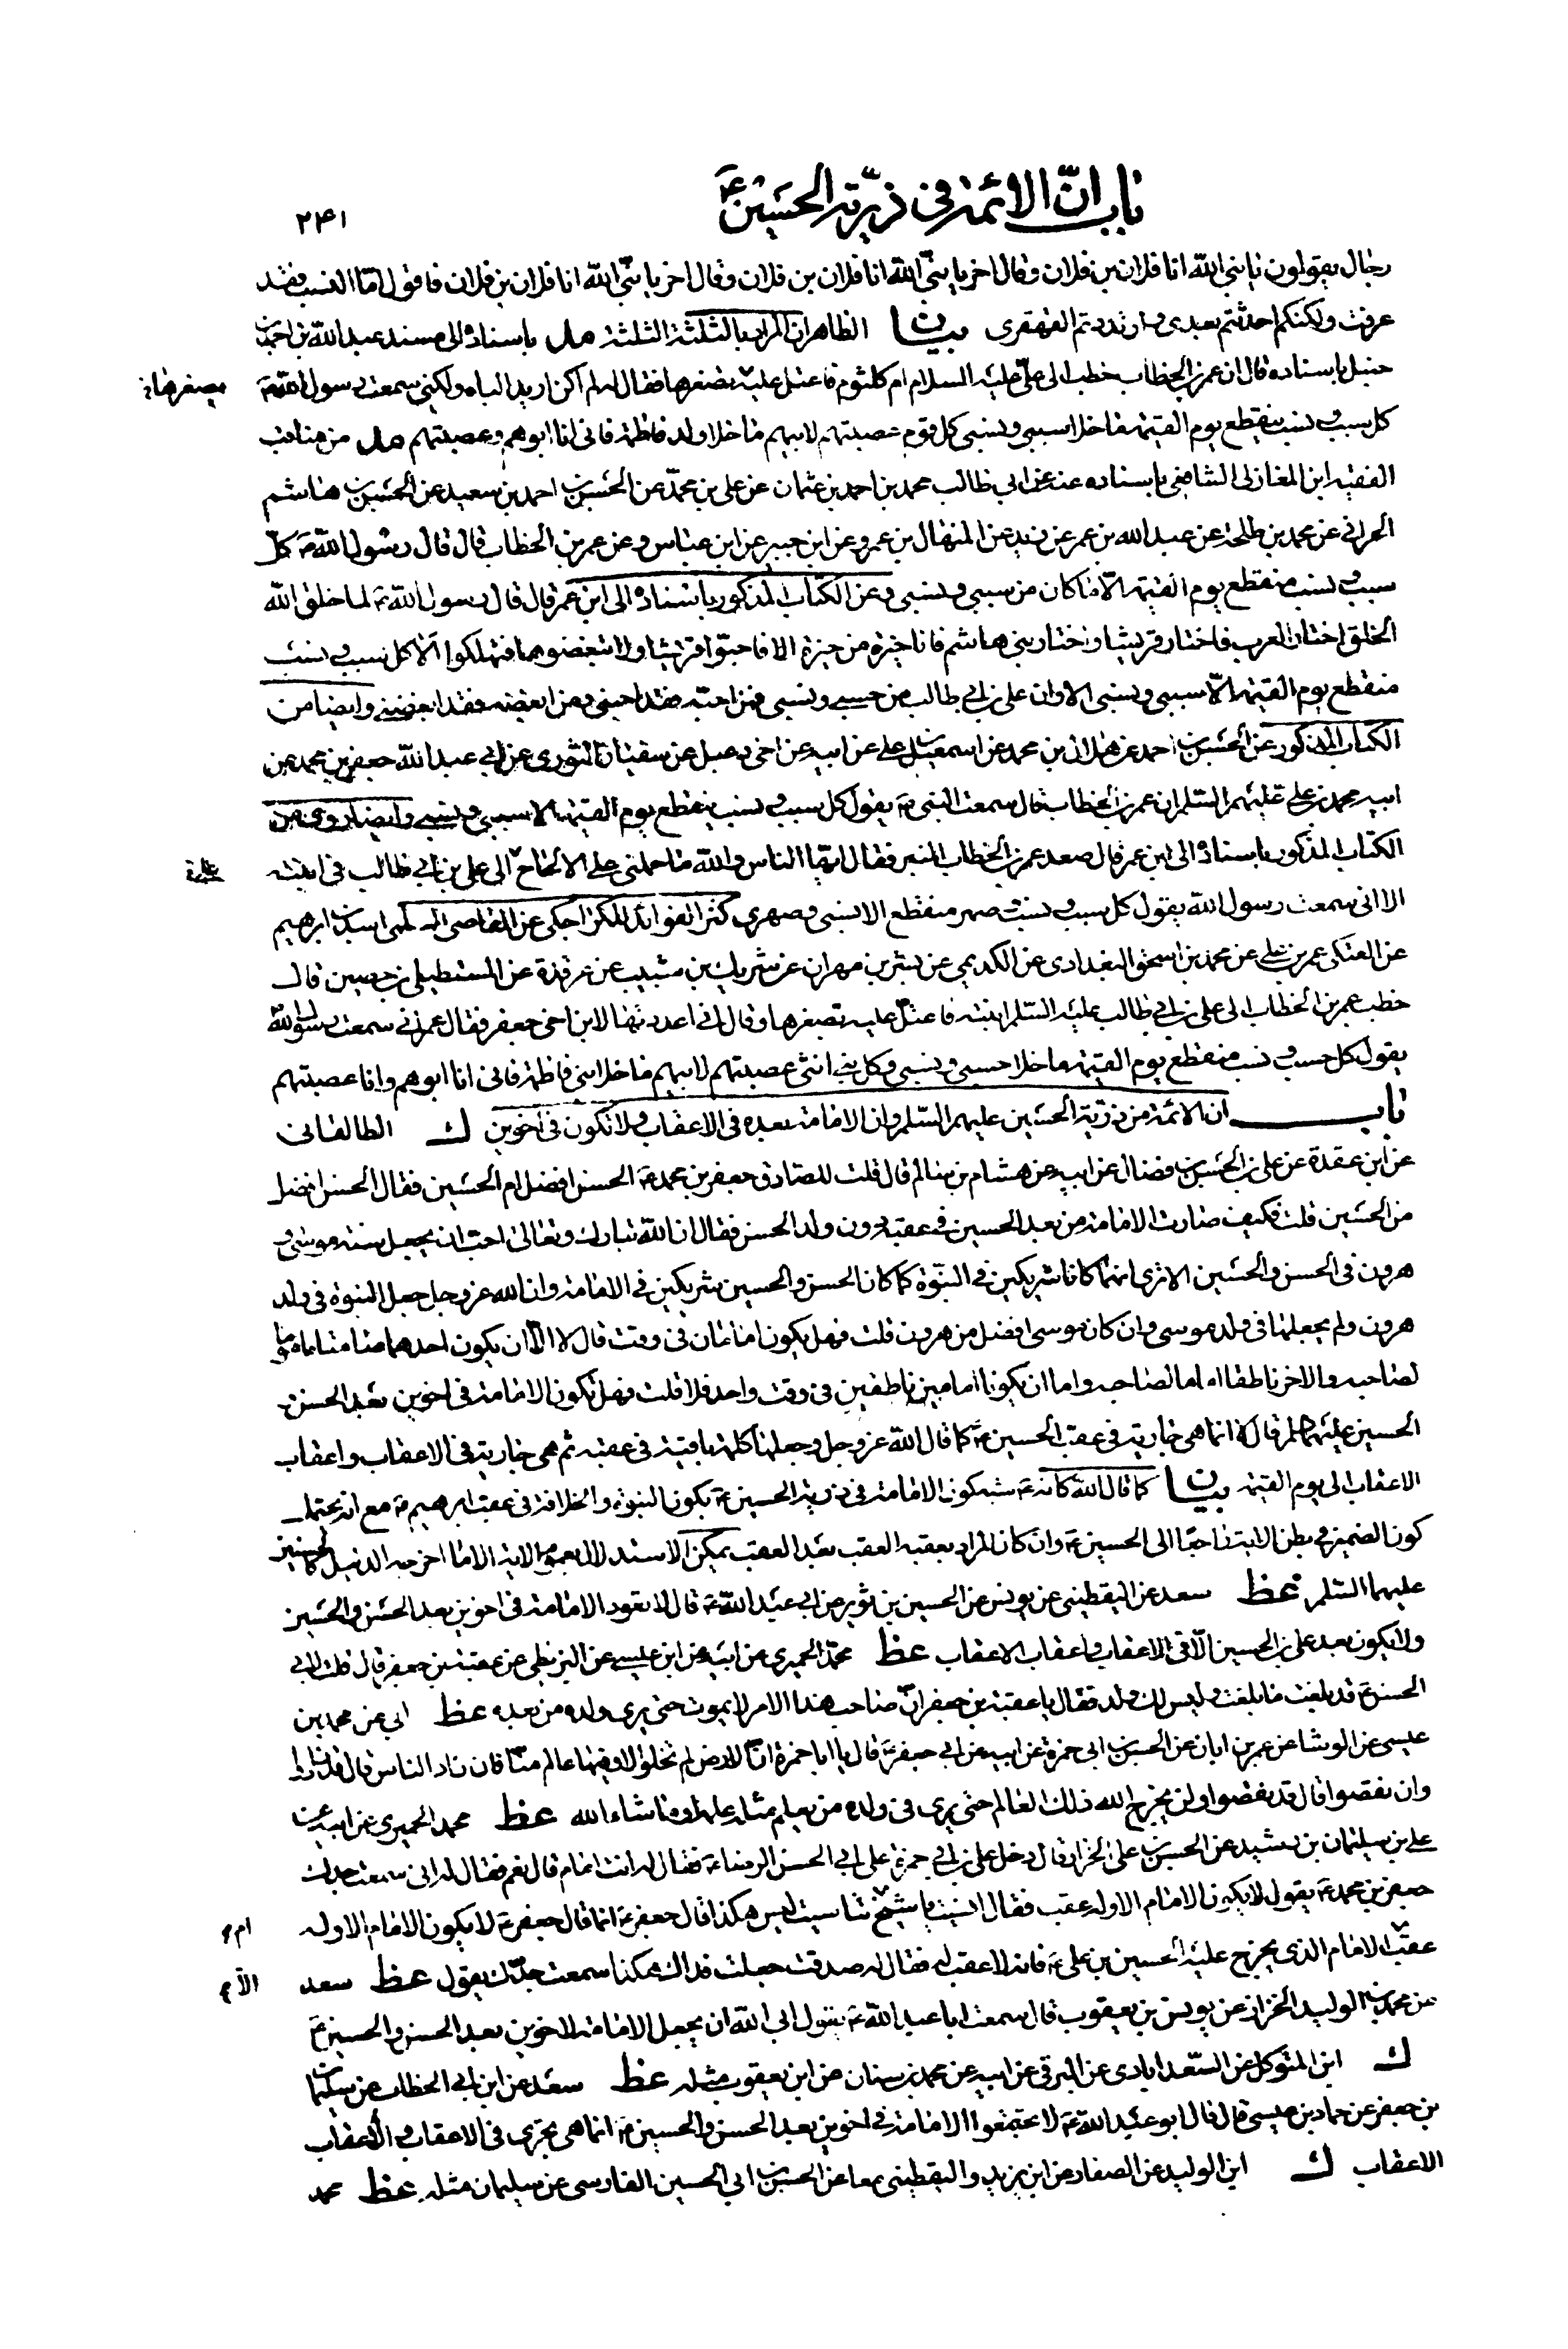 باب انّ الائمة في ذرّية الحسين ع
٢٤١
رجال يقولون يا نبي الله انا فلان بن فلان وقال اخر يا نبيّ الله انا فلان بن فلان وقال اخر يا نبيّ الله انا فلان بن فلان فاقول امّا النسب فقد
عرفت ولكنكم احدثتم بعدي وارتددتم القهقرى بيان الظاهر ان المراد بالثلثة الثلثة مد باسناده الى مسند عبد الله بن احمد بن
حنبل باسناده قال ان عمر بن الخطاب خطب الى عليّ عليه السلام ام كلثوم فاعتل عليه بصغرها فقال له لم اكن اريد الباه ولكني سمعت رسول الله ص
بصغرها خ
كل سبب ونسب منقطع يوم القيمة ما خلا سببي ونسبي كل قوم عصبتهم لابيهم ما خلا ولد فاطمة فاني انا ابوهم وعصبتهم مد من مناقب
الفقيه ابن المغازلي الشافعي باسناده عنه عن ابي طالب محمد بن احمد بن عثمان عن علي بن محمّد عن الحسن بن احمد بن سعيد عن الحسن بن هاشم
الحراني عن محمد بن طلحة عن عبد الله بن عمر عن زيد عن المنهال بن عمرو عن ابن جبير عن ابن عباس وعن عمر بن الخطاب قال قال رسول الله ص كلّ
سبب ونسب منقطع يوم القيمة الّا ما كان من سببي ونسبي وعن الكتاب المذكور باسناده الى ابن عمر قال قال رسول الله ص لما خلق الله
الخلق اختار العرب فاختار قريشا واختار بني هاشم فانا خيرة من خيرة الا فاحبّوا قريشا ولا تبغضوهما فتهلكوا الا كل سبب ونسب
منقطع يوم القيمة الّا سببي ونسبي الا وان علي بن ابي طالب من حسبي ونسبي فمن احبّه فقد احبني ومن ابغضه فقد ابغضني وايضا من
الكتاب المذكور عن الحسن بن احمد عن هلال بن محمد عن اسمعيل بن علي عن ابيه عن اخي دعبل عن سفيان الثوري عن ابي عبد الله جعفر بن محمد عن
ابيه محمد بن علي عليهم السلم ان عمر بن الخطاب قال سمعت النبي ص يقول كل سبب ونسب ينقطع يوم القيمة الا سببي ونسبي وايضا روى من
الكتاب المذكور باسناده الى ابن عمر قال صعد عمر بن الخطاب المنبر فقال ايّها الناس والله ما حملني على الالحاح الى علي بن ابي طالب في ابنته
علىّ خ
الا اني سمعت رسول الله يقول كل سبب ونسب وصهر منقطع الا نسبي وصهري كنز الفوائد للكراجكي عن القاضي السلمي اسد بن ابرهيم
عن العتكي عمر بن علي عن محمد بن اسحق البغدادي عن الكديمي عن بشر بن مهران عن شريك بن شبيب عن عرقدة عن المستطيل بن حصين قال
خطب عمر بن الخطاب الى علي بن ابي طالب عليه السلم ابنته فاعتلّ عليه بصغرها وقال اني اعددتها لابن اخي جعفر فقال عمر اني سمعت رسول الله
يقول كل حسب ونسب منقطع يوم القيمة ما خلا حسبي ونسبي وكل بني انثى عصبتهم لابيهم ما خلا بني فاطمة فاني انا ابوهم وانا عصبتهم
باب ان الائمة من ذرّية الحسين عليهم السلم وان الامامة بعده في الاعقاب ولا تكون في اخوين ك الطالقاني
عن ابن عقدة عن علي بن الحسن بن فضال عن ابيه عن هشام بن سالم قال قلت للصادق جعفر بن محمد ع الحسن افضل ام الحسين فقال الحسن افضل
من الحسين قلت فكيف صارت الامامة من بعد الحسين في عقبه دون ولد الحسن فقال ان الله تبارك وتعالى احب ان يجعل سنة موسى و
هرون في الحسن والحسين الا ترى انهما كانا شريكين في النبوّة كما كان الحسن والحسين شريكين في الامامة وان الله عز وجل جعل النبوة في ولد
هرون ولم يجعلها في ولد موسى وان كان موسى افضل من هرون قلت فهل يكون امامان في وقت قال لا الّا ان يكون احدهما صامتا ماموما
لصاحبه والاخر ناطقا اماما لصاحبه واما ان يكونا امامين ناطقين في وقت واحد فلا قلت فهل تكون الامامة في اخوين بعد الحسن و
الحسين عليهما السلم قال لا انما هي جارية في عقب الحسين ع كما قال الله عز وجل وجعلها كلمة باقية في عقبه ثم هي جارية في الاعقاب واعقاب
الاعقاب الى يوم القيمة بيان كما قال الله كانه ع شبه كون الامامة في ذرية الحسين ع بكون النبوة والخلافة في عقب ابرهيم ع مع انه يحتمل
كون الضمير في بطن الاية راجعا الى الحسين ع وان كان المراد بعقبه العقب بعد العقب يمكن الاستدلال بعموم الاية الا ما اخرجه الدليل كالحسنين
عليهما السلم غط سعد عن اليقطيني عن يونس عن الحسين بن ثوير عن ابي عبد الله ع قال لا تعود الامامة في اخوين بعد الحسن والحسين
ولا يكون بعد علي بن الحسين الّا في الاعقاب واعقاب الاعقاب غط محمّد الحميري عن ابيه عن ابن عيسى عن البزنطي عن عقبة بن جعفر قال قلت لابي
الحسن ع قد بلغت ما بلغت وليس لك ولد فقال يا عقبة بن جعفر انّ صاحب هذا الامر لا يموت حتى يرى ولده من بعده غط ابي عن محمد بن
عيسى عن الوشا عن عمر بن ابان عن الحسن بن ابي حمزة عن ابيه عن ابي جعفر ع قال يا ابا حمزة انّ الارض لم تخلو الا وفيها عالم منّا فان زاد الناس قال قد زادوا
وان نقصوا قال قد نقصوا ولن يخرج الله ذلك العالم حتى يرى في ولده من يعلم مثل علمه او ما شاء الله غط محمد الحميري عن ابيه عن
علي بن سليمان بن رشيد عن الحسن بن علي الخزاز قال دخل علي بن ابي حمزة على ابي الحسن الرضا ع فقال له انت امام قال نعم فقال له اني سمعت جدك
جعفر بن محمد ع يقول لا يكون الامام الا وله عقب فقال انسيت يا شيخ ام تناسيت ليس هكذا قال جعفر ع انما قال جعفر ع لا يكون الامام الا وله
ام م
عقب الامام الذي يخرج عليه الحسين بن علي ع فانه لا عقب له فقال له صدقت جعلت فداك هكذا سمعت جدّك يقول غط سعد
الّا م
عن محمد بن الوليد الخزاز عن يونس بن يعقوب قال سمعت ابا عبد الله ع يقول ابى الله ان يجعل الامامة لاخوين بعد الحسن والحسين ع
ك ابن المتوكل عن السّعدابادي عن البرقي عن ابيه عن محمد بن سنان عن ابن يعقوب مثله غط سعد عن ابن ابي الخطاب عن سليمان
بن جعفر عن حماد بن عيسى قال قال ابو عبد الله ع لا تجتمع الامامة في اخوين بعد الحسن والحسين ع انما هي تجري في الاعقاب واعقاب
الاعقاب ك ابن الوليد عن الصفار عن ابن يزيد واليقطيني معا عن الحسن بن ابي الحسين الفارسي عن سليمان مثله غط محمد